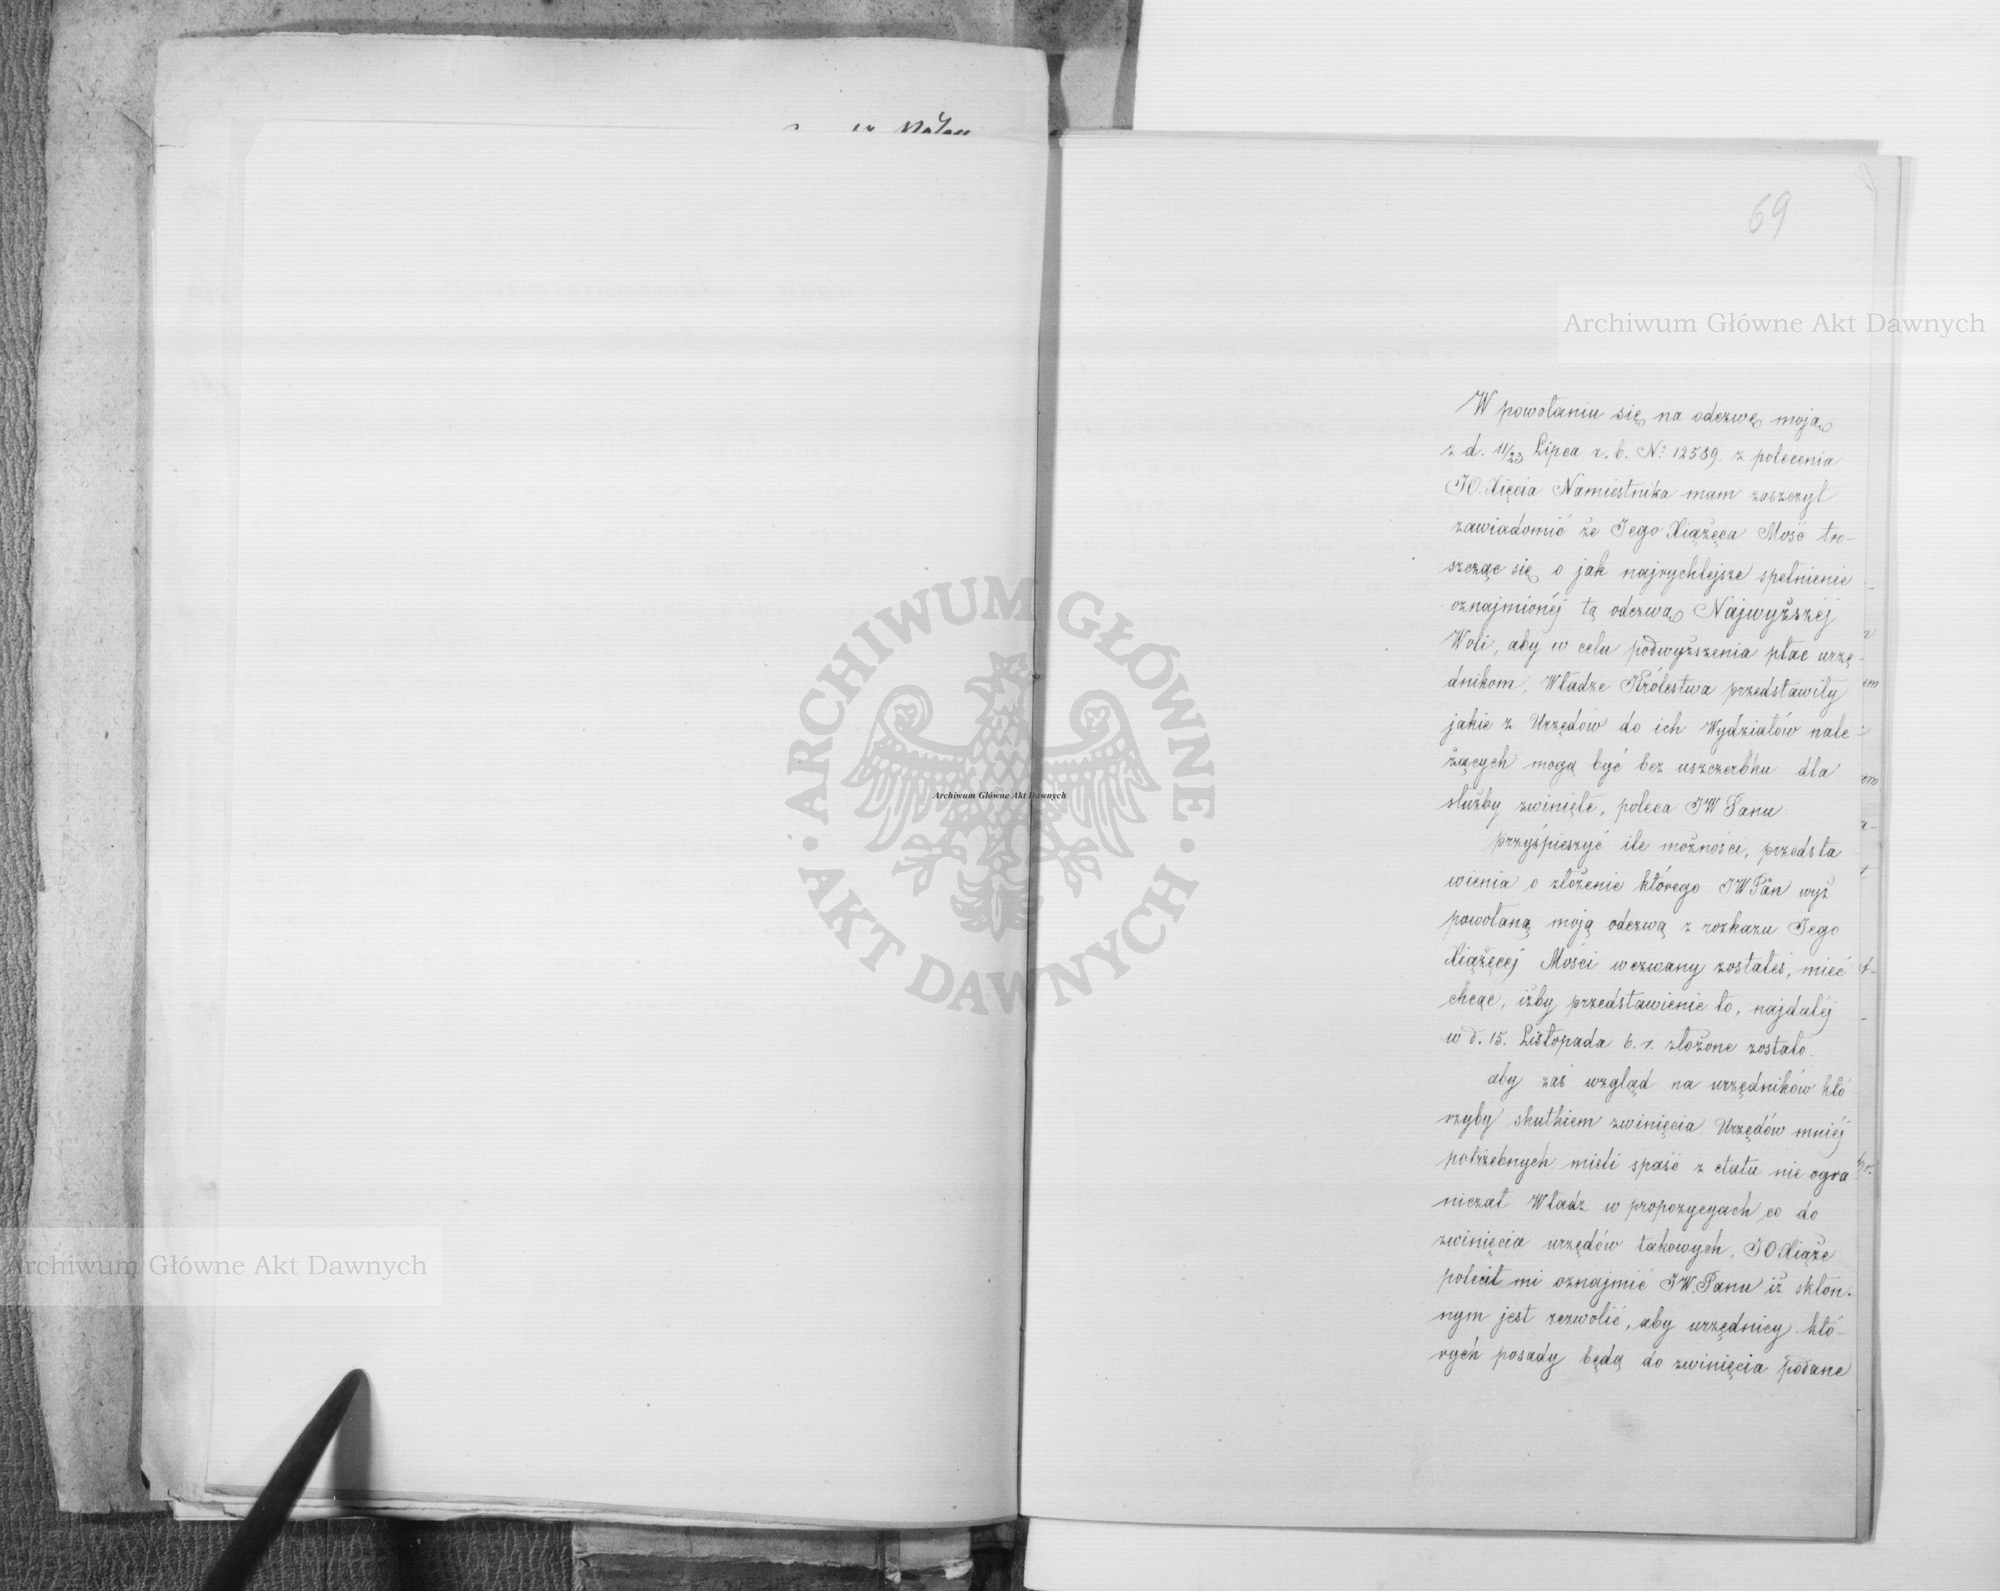 69
W powołaniu się na odezwę moją
z d. 11/23 Lipca r. b. No 12589 z polecenia
JO. Xięcia Namiestnika mam zaszczyt
zawiadomić że Jego Xiążęca Mość tro-
szcząc się o jak najrychlejsze spełnienie
oznajmionéj tą odezwą Najwyższéj
Woli, aby w celu podwyższenia płac urzę-
dnikom, Władze Królestwa przedstawiły
jakie z Urzędów do ich Wydziałów nale-
żących mogą być bez uszczerbku dla
służby zwinięte, poleca JW Panu
przyśpieszyć ile możności, przedsta
wienia o złożenie którego JW Pan wyż
powołaną moją odezwą z rozkazu Jego
Xiążęcéj Mości wezwany zostałeś, mieć
chcąc, iżby przedstawienie to, najdaléj
w d. 15. Listopada b. r. złożone zostało.
aby zaś wzgląd na urzędników któ
rzyby skutkiem zwinięcia Urzędów mniéj
potrzebnych mieli spaść z etatu nie ogra
niczał Władz w propozycyach co do
zwinięcia urzędów takowych, JO Xiąże
polecił mi oznajmić JW. Panu iż skłon-
nym jest zezwolić, aby urzędnicy któ-
rych posady będą do zwinięcia podane
Archiwum Główne Akt Dawnych
Archiwum Główne Akt Dawnych
Archiwum Główne Akt Dawnych
ARCHIWUM GŁÓWNE
AKT DAWNYCH